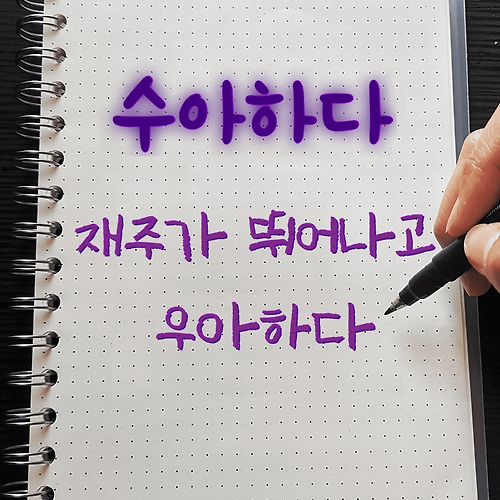 수아하다
재주가 뛰어나고
우아하다